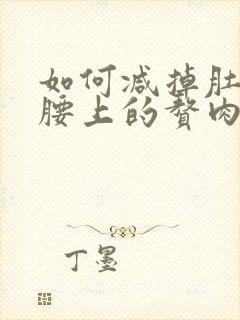 如何减掉肚
腰上的赘肉
丁墨